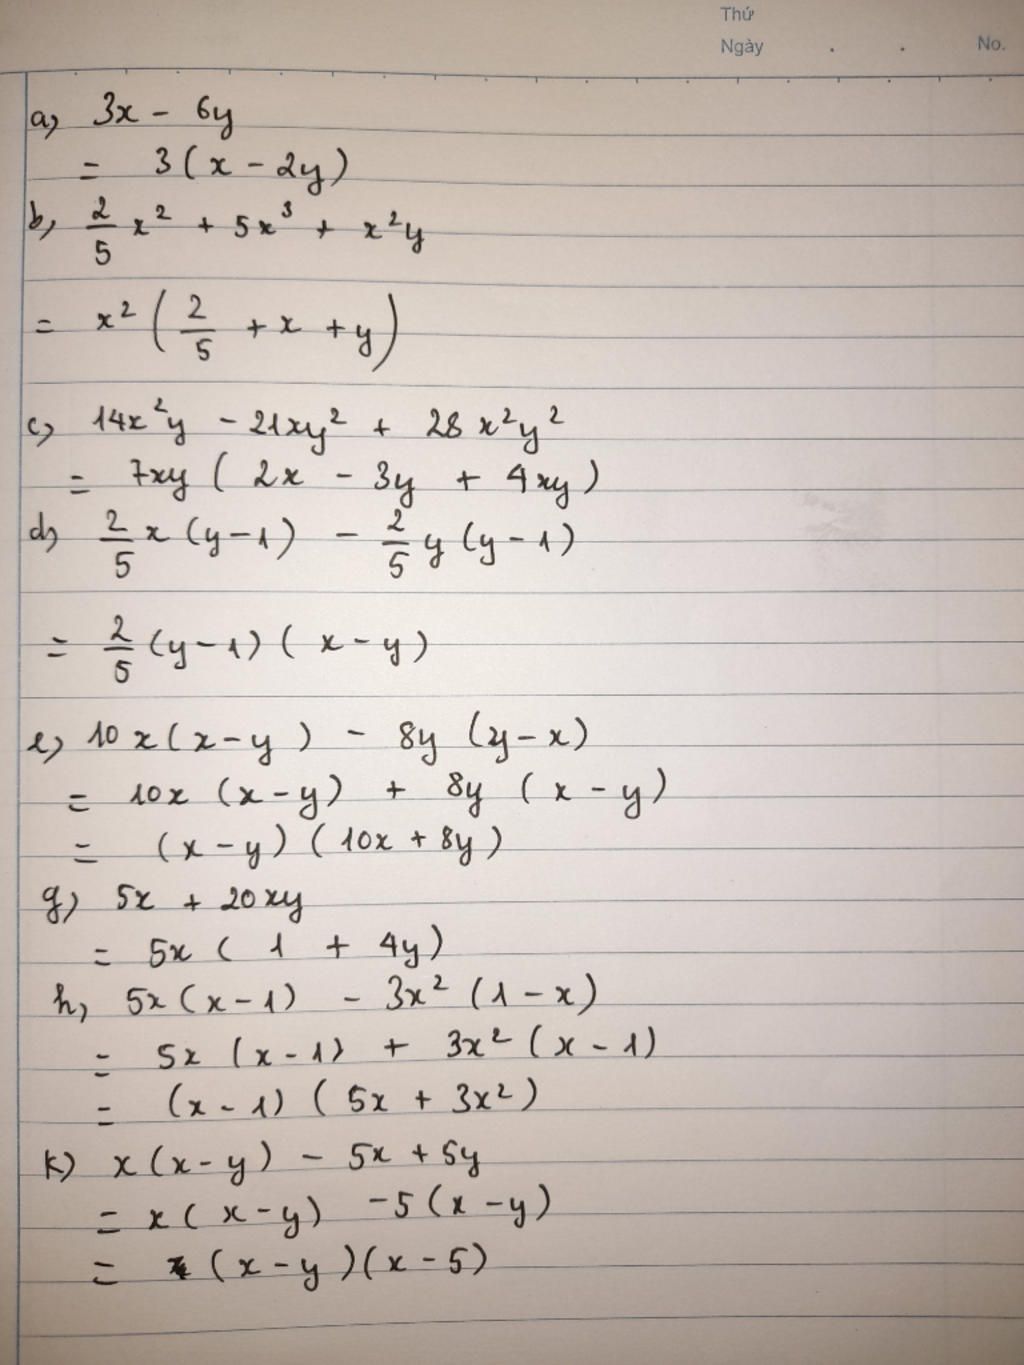 Thứ
Ngày . . No.
a) 3x - 6y
= 3(x - 2y)
b) 2/5 x² + 5x³ + x²y
= x² (2/5 + x + y)
c) 14x²y - 21xy² + 28x²y²
= 7xy (2x - 3y + 4xy)
d) 2/5 x (y-1) - 2/5 y (y-1)
= 2/5 (y-1) (x-y)
e) 10x(x-y) - 8y (y-x)
= 10x (x-y) + 8y (x-y)
= (x-y) (10x + 8y)
g) 5x + 20xy
= 5x (1 + 4y)
h) 5x(x-1) - 3x² (1-x)
= 5x (x-1) + 3x² (x-1)
= (x-1) (5x + 3x²)
k) x(x-y) - 5x + 5y
= x(x-y) -5(x-y)
= (x-y)(x-5)